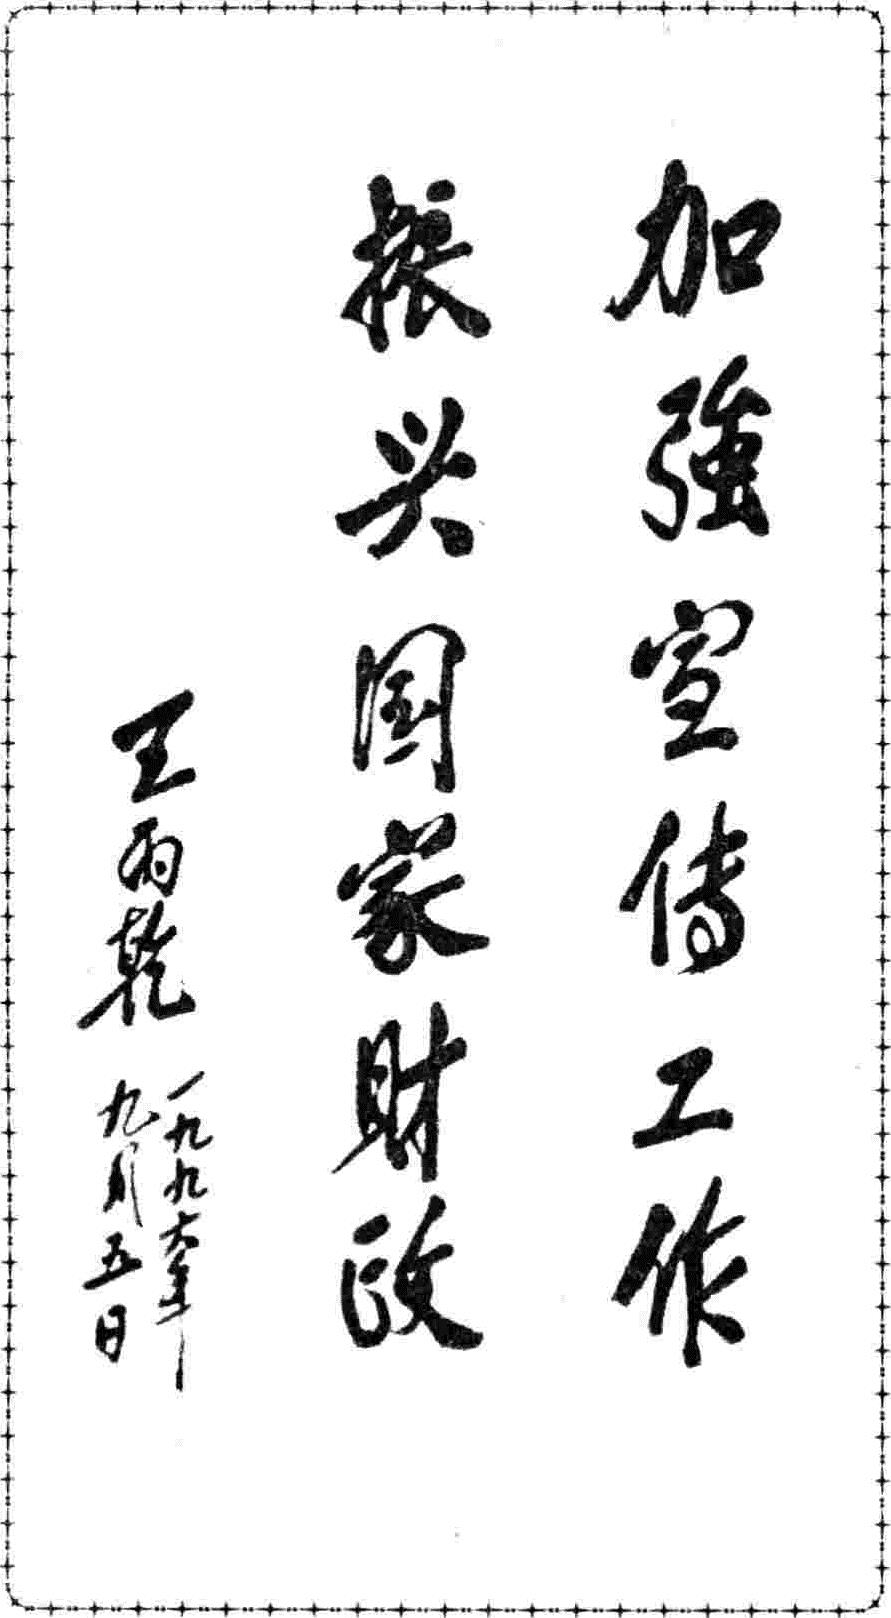 加強宣传工作
振兴国家财政
王丙乾
一九九六年
九月五日